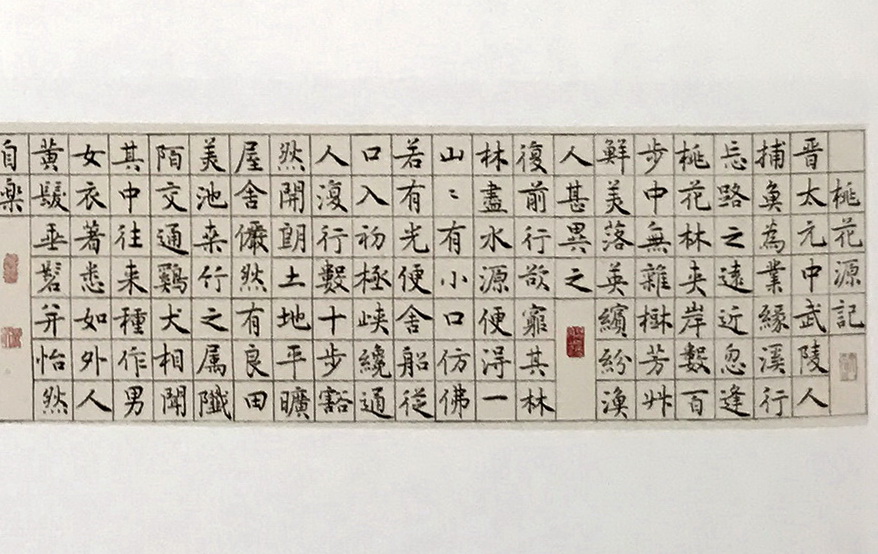 桃花源記
晋太元中武陵人
捕魚為業緣溪行
忘路之遠近忽逢
桃花林夹岸數百
步中無雜樹芳艸
鮮美落英繽紛漁
人甚異之
復前行欲窮其林
林盡水源便得一
山〻有小口仿佛
若有光便舍船從
口入初極峡纔通
人復行數十步豁
然開朗土地平曠
屋舍儼然有良田
美池桒竹之属
陌交通鷄犬相聞
其中往来種作男
女衣著悉如外人
黄髮垂髫并怡然
自樂